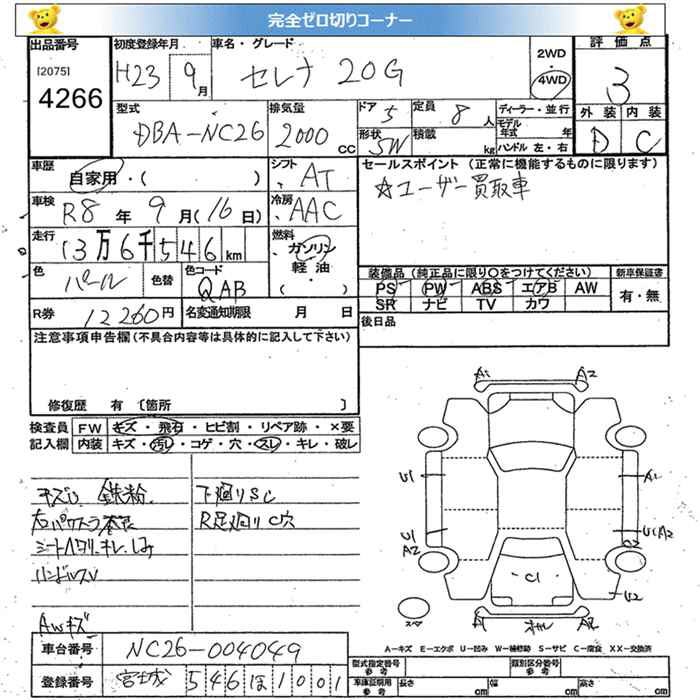 完全ゼロ切りコーナー
出品番号 初度登録年月 車名・グレード 2WD・4WD 評価点
[2075]
4266
H23 9月 セレナ 20G 3
型式 排気量 ドア 5 定員 8人 ディーラー・並行 外装 内装
DBA-NC26 2000CC 形状 SW 積載 kg モデル年式 年 D C
ハンドル 左・右
車歴 自家用・( ) シフト AT セールスポイント (正常に機能するものに限ります)
☆ユーザー買取車
車検 R8年 9月(16日) 冷房 AAC
走行 13万6千546km 燃料 ガソリン 軽油 ・( )
色 パール 色替 色コード QAB
装備品(純正品に限り〇をつけてください) 新車保証書
PS PW ABS エアB AW 有・無
SR ナビ TV カワ
R券 12260円 名変通知期限 月 日
後日品
注意事項申告欄(不具合内容等は具体的に記入して下さい)
修復歴 有 〔箇所 〕
検査員記入欄 FW キズ・飛石・ヒビ割・リペア跡・×要
内装 キズ・汚レ・コゲ・穴・スレ・キレ・破レ
鉄粉 下廻りSC
R足廻りC穴
シートハタリ.キレ.しみ
ハンドルスレ
AWキズ
A1 A2
U1 A1
U1 A2 U1 A2 C2
C1
U2
スペア A A2
A-キズ E-エクボ U-凹み W-補修跡 S-サビ C-腐食 XX-交換済
車台番号 NC26-004049
登録番号 宮城 546 ほ 1001
型式指定番号 参考 類別区分番号 参考
車庫証明用 参考 長さ cm 幅 cm 高さ cm